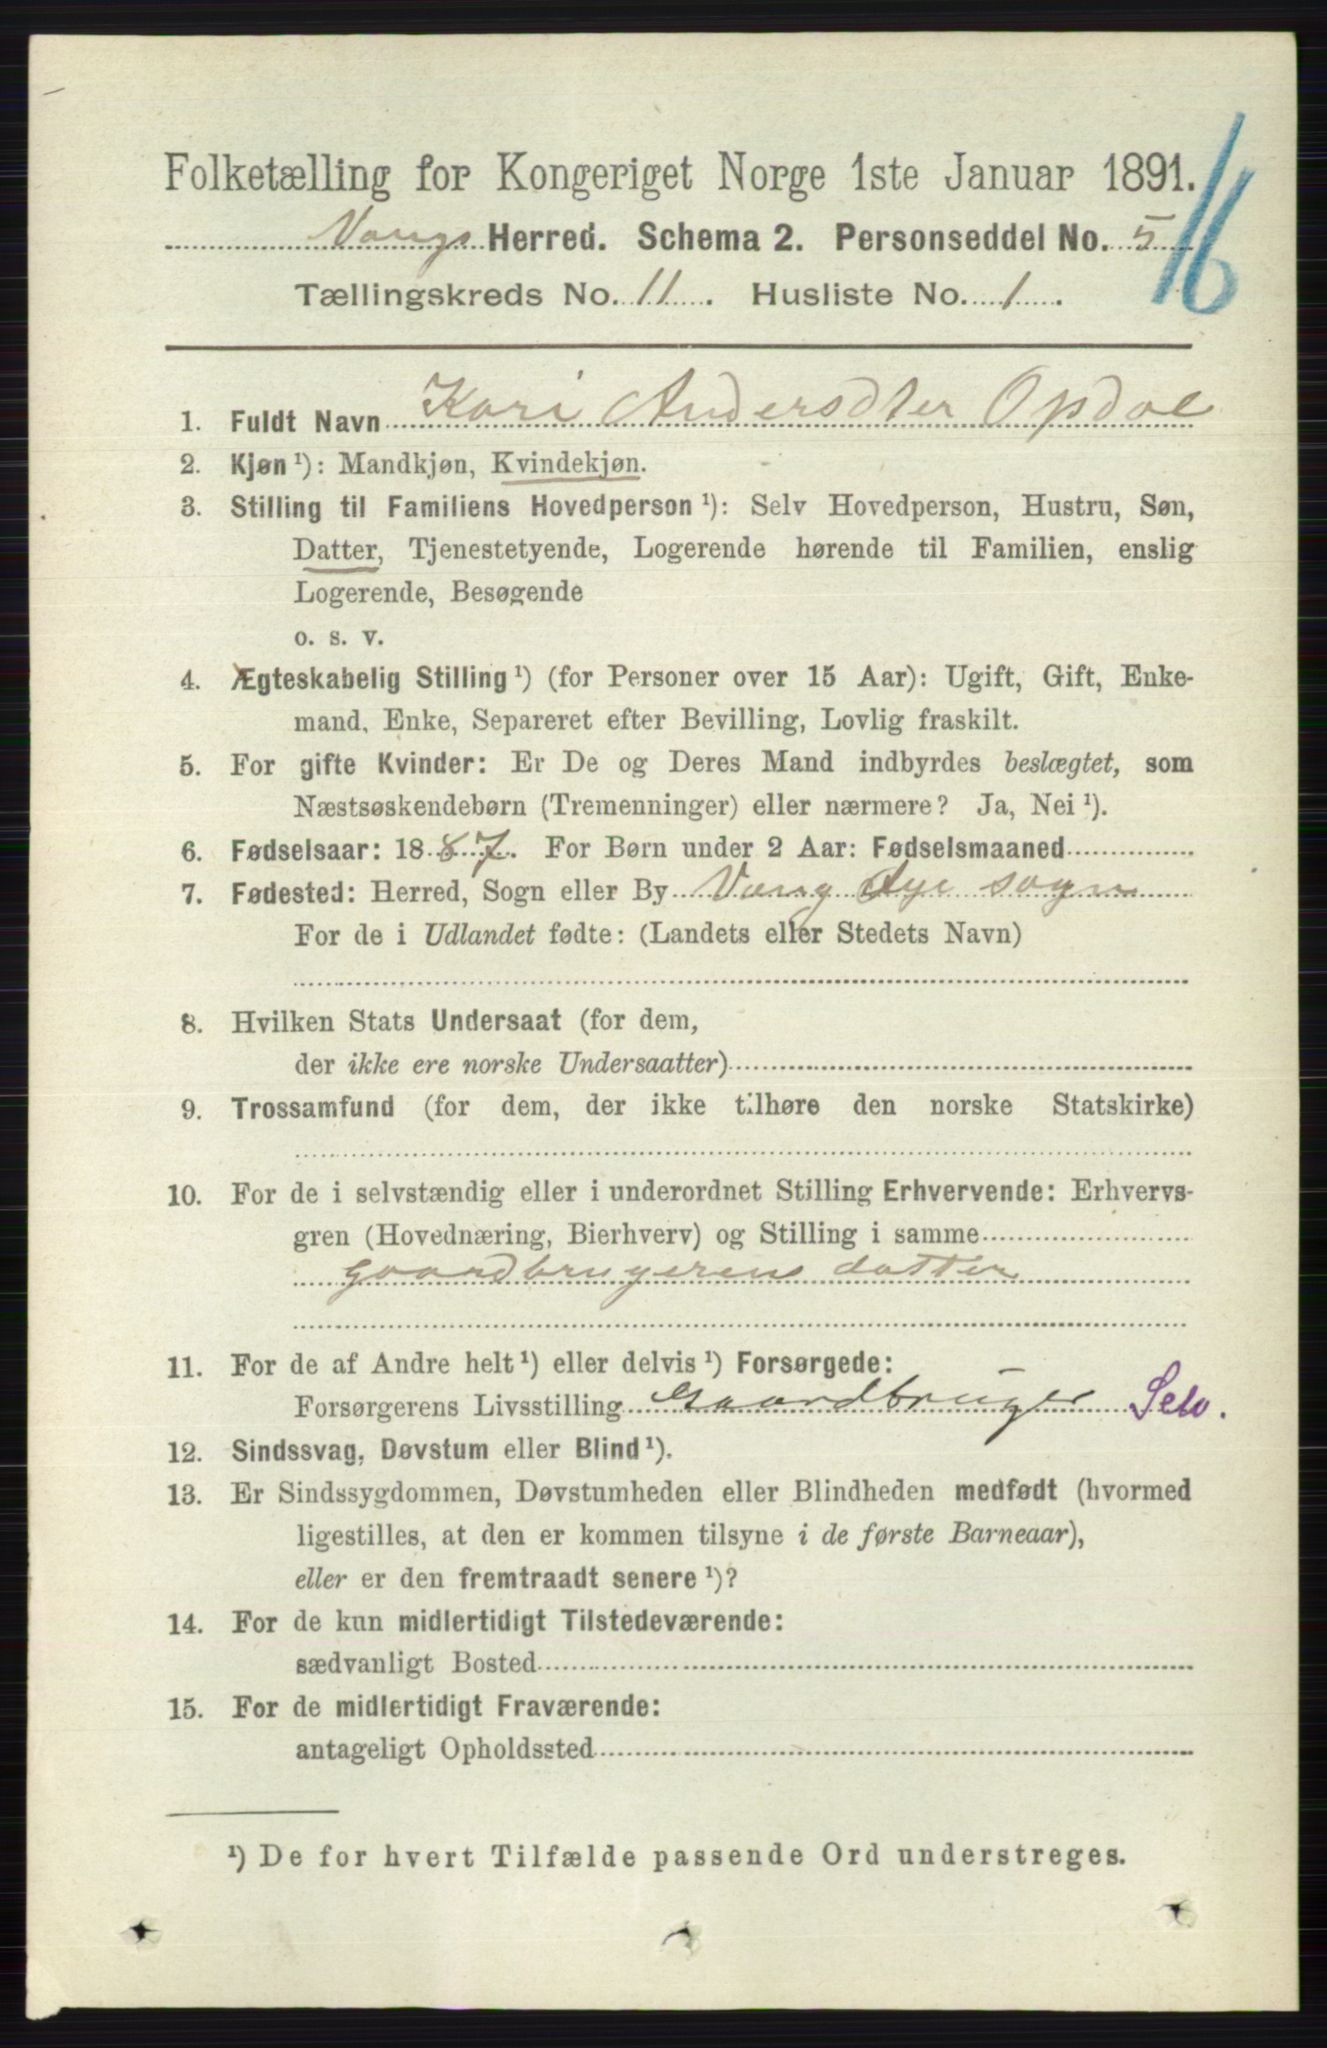 Folketælling for Kongeriget Norge 1ste Januar 1891.
16
Vangs Herred. Schema 2. Personseddel No. 5
Tællingskreds No. 11. Husliste No. 1.
1. Fuldt Navn Kari Andersdter Opdal
2. Kjøn ¹): Mandkjøn, Kvindekjøn.
3. Stilling til Familiens Hovedperson ¹): Selv Hovedperson, Hustru, Søn,
Datter, Tjenestetyende, Logerende hørende til Familien, enslig
Logerende, Besøgende
o. s. v.
4. Ægteskabelig Stilling ¹) (for Personer over 15 Aar): Ugift, Gift, Enke-
mand, Enke, Separeret efter Bevilling, Lovlig fraskilt.
5. For gifte Kvinder: Er De og Deres Mand indbyrdes beslægtet, som
Næstsøskendebørn (Tremenninger) eller nærmere? Ja, Nei ¹).
6. Fødselsaar: 1887. For Børn under 2 Aar: Fødselsmaaned
7. Fødested: Herred, Sogn eller By Vang Øye sogn
For de i Udlandet fødte: (Landets eller Stedets Navn)
8. Hvilken Stats Undersaat (for dem,
der ikke ere norske Undersaatter)
9. Trossamfund (for dem, der ikke tilhøre den norske Statskirke)
10. For de i selvstændig eller i underordnet Stilling Erhvervende: Erhvervs-
gren (Hovednæring, Bierhverv) og Stilling i samme
gaardbrugerens datter
11. For de af Andre helt ¹) eller delvis ¹) Forsørgede:
Forsørgerens Livsstilling Gaardbruger Selv.
12. Sindssvag, Døvstum eller Blind ¹).
13. Er Sindssygdommen, Døvstumheden eller Blindheden medfødt (hvormed
ligestilles, at den er kommen tilsyne i de første Barneaar),
eller er den fremtraadt senere ¹)?
14. For de kun midlertidigt Tilstedeværende:
sædvanligt Bosted
15. For de midlertidigt Fraværende:
antageligt Opholdssted
¹) De for hvert Tilfælde passende Ord understreges.